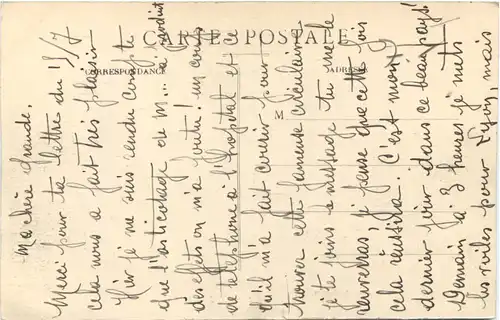 CARTE POSTALE
CORRESPONDANCE
ADRESSE
M
Ma chère grande.
Merci pour ta lettre du 15/7
cela nous a fait très plaisir
Hier je ne me suis rendu compte
que l'asticotage ou m... a produit
des effets on m'a foutu! un coup
de téléphone à l'hôpital et ce
qu'il m'a fait courir pour
trouver cette fameuse circulaire
je te joins ce message tu me le
renverras, je pense que cette fois
cela réussira. C'est mon
dernier jour dans ce beau pays!
Demain à 3 heures je mets
les voiles pour Lyon, mais